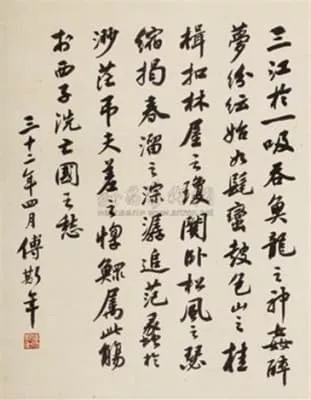 三江於一吸吞魚龍之神姦醉
夢紛紜始如髦蠻鼓包山之桂
楫扣林屋之瓊關卧松風之瑟
縮揭春溜之淙潺追范蠡於
渺茫吊夫差之惸鰥屬此觴
於西子洗亡國之愁
三十二年四月傅斯年